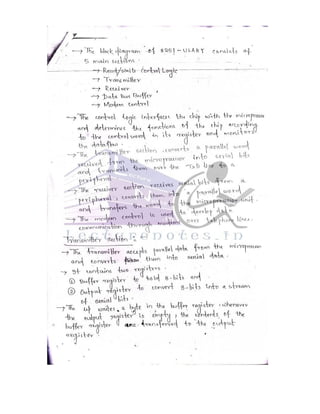 → The block diagram of 8251-USART consists of
5 main sections.
→ Read/write control Logic
→ Transmitter
→ Receiver,
→ Data Bus Buffer
→ Modem control
→ The control logic interfaces the chip with the microprocessor
and determines the functions of the chip according
to the control word in its register and monitors
the data flow.
→ The transmitter section converts a parallel word
received from the microprocessor into serial bits
and transmits them over the TXD line to a
peripheral.
→ The receiver section receives serial bits from a
peripheral, converts them into a parallel word
and transfers the word to the microprocessor unit.
→ The modem control is used to
communication through modems over telephone lines.
Transmitter section :-
→ The transmitter accepts parallel data from the microprocessor
and converts them into serial data.
→ It contains two registers.
① Buffer register to hold 8-bits and
② Output register to convert 8-bits into a stream
of serial bits.
→ The writes a byte in the buffer register. whenever
the output register is empty, the contents of the
buffer register are transferred to the output
register.